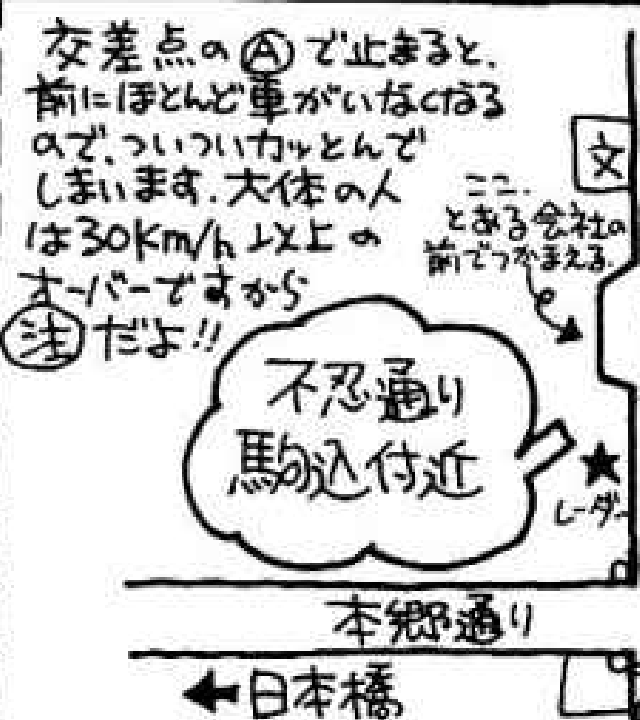 交差点のⒶで止まると、
前にほとんど車がいなくなる
ので、ついついカッとんで
しまいます。大体の人
は30km/h以上の
オーバーですから
㊟だよ!!
文
ここ.
とある会社の
前でつかまえる.
不忍通り
駒込付近
★
レーダー
本郷通り
←日本橋